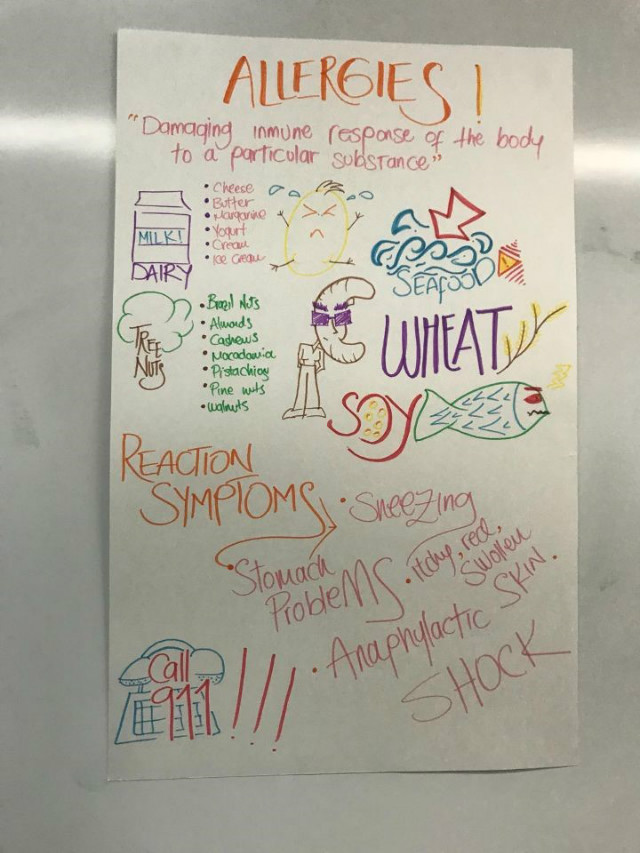 ALLERGIES!
"Damaging inmune response of the body
to a particular substance"
MILK!
DAIRY
• Cheese
• Butter
• Margarine
• Yogurt
• Cream
• Ice Cream
SEAFOOD
TREE
NUTS
• Brazil Nuts
• Almonds
• Cashews
• Macadamia
• Pistachios
• Pine nuts
• walnuts
WHEAT
SOY
REACTION
SYMPTOMS
• Sneezing
• Stomach
Problems
• itchy, red,
swollen
SKIN.
• Anaphylactic
SHOCK
Call
911!!!